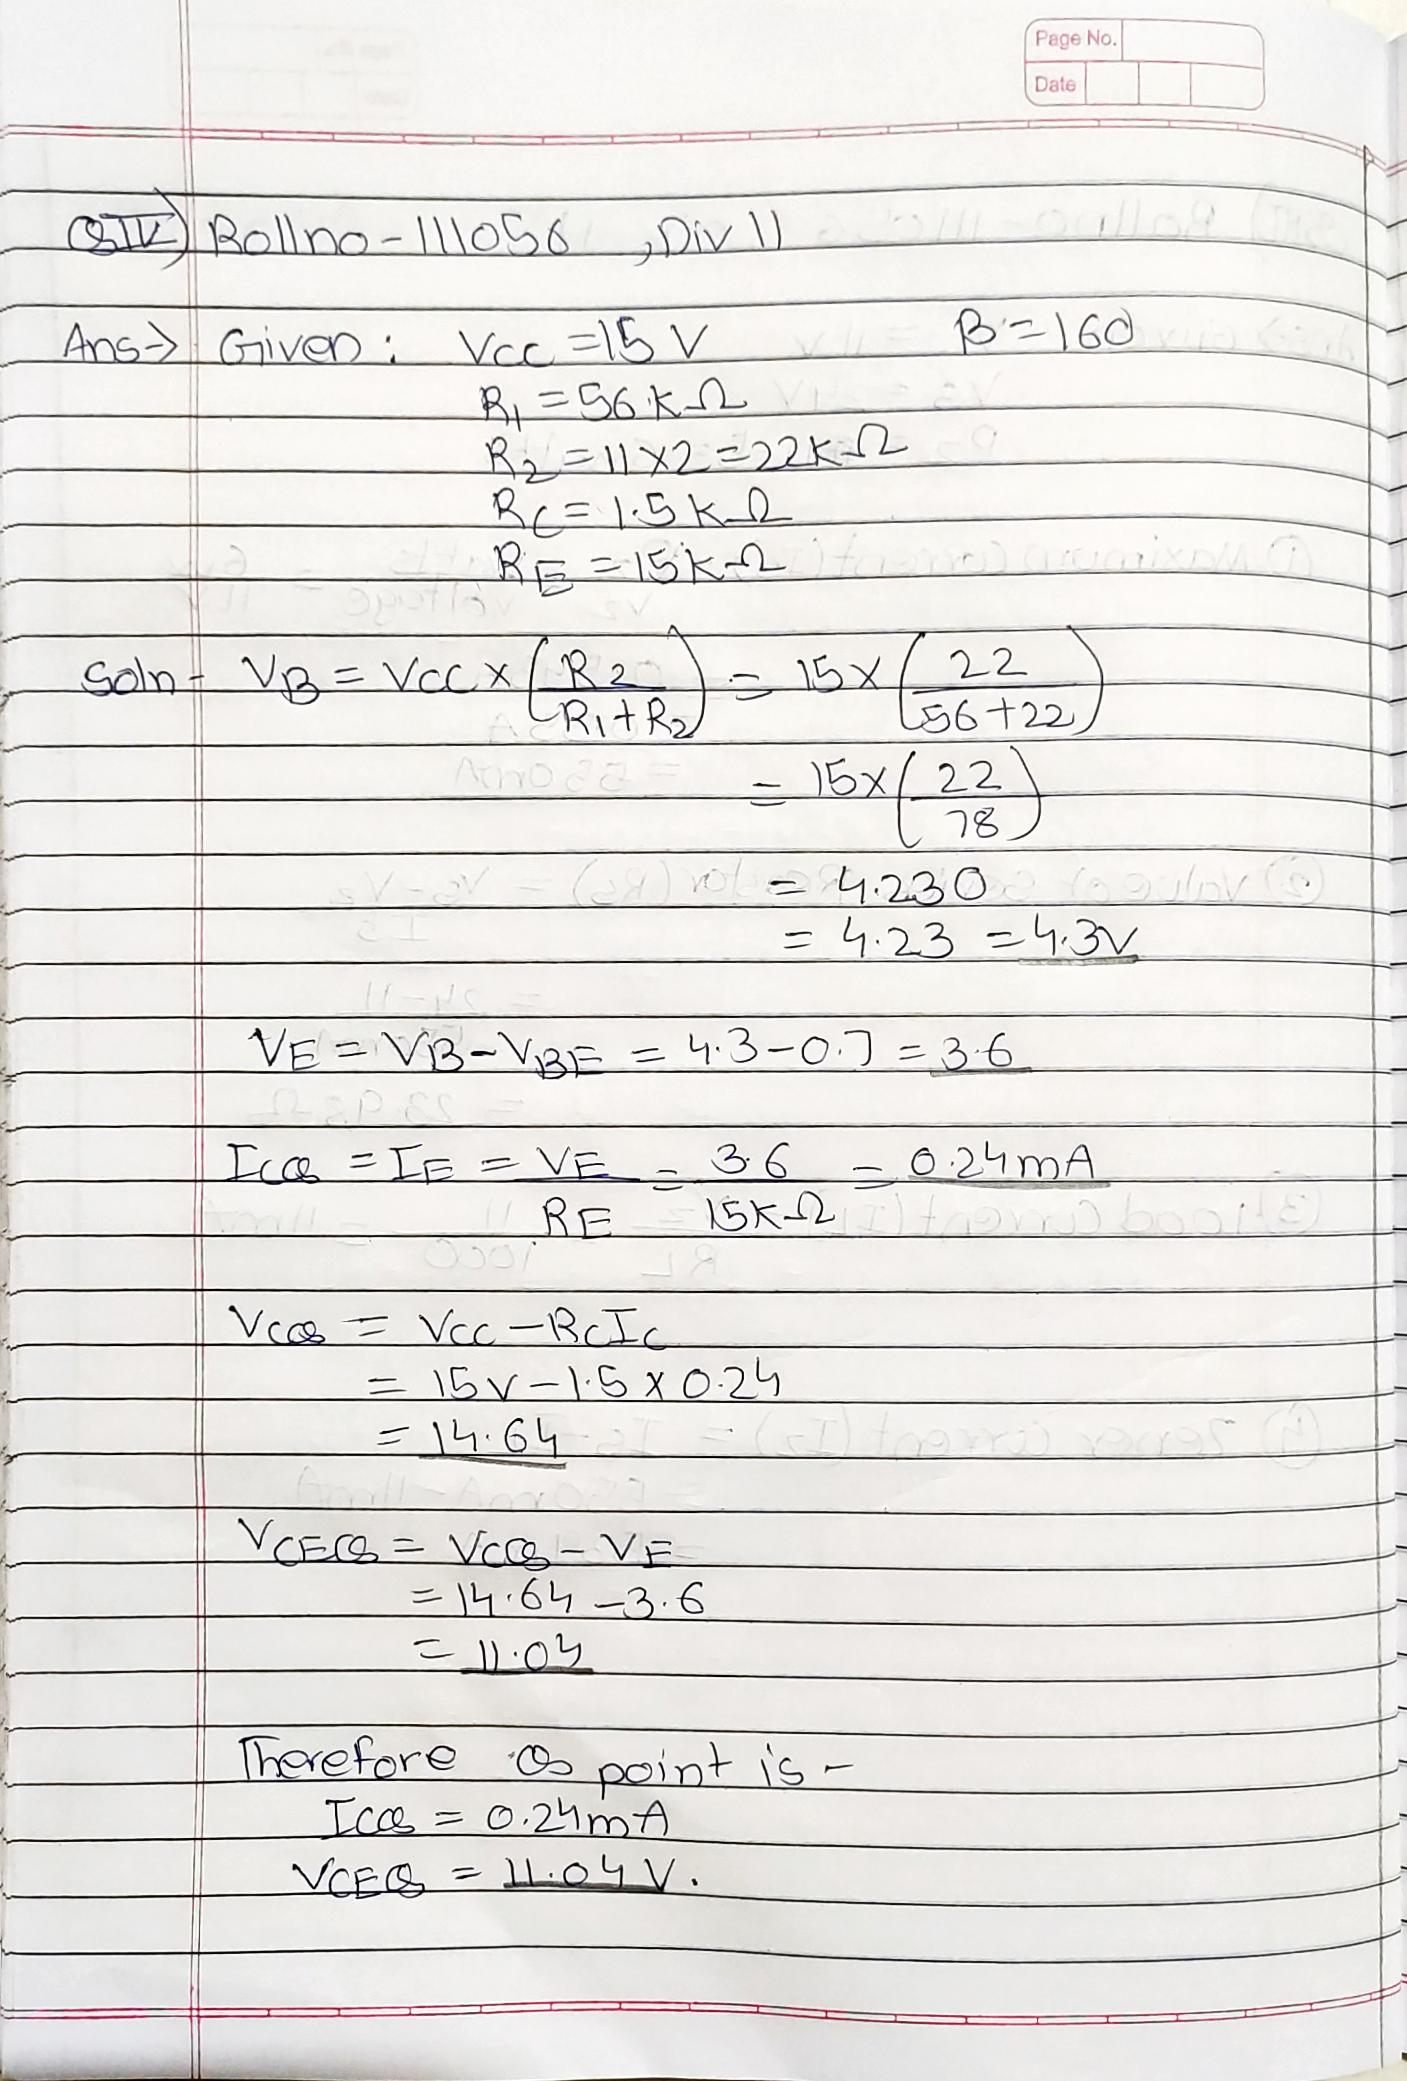 Page No.
Date
QIV) Rollno-111056 , Div 11
Ans→ Given : VCC = 15 V β = 160
R1 = 56 kΩ
R2 = 11 x 2 = 22kΩ
RC = 1.5 kΩ
RE = 15kΩ
Soln - VB = VCC x (R2 / R1 + R2) = 15 x (22 / 56 + 22)
= 15 x (22 / 78)
= 4.230
= 4.23 = 4.3V
VE = VB - VBE = 4.3 - 0.7 = 3.6
ICQ = IE = VE / RE = 3.6 / 15kΩ = 0.24mA
VCQ = VCC - RCIC
= 15V - 1.5 x 0.24
= 14.64
VCEQ = VCQ - VE
= 14.64 - 3.6
= 11.04
Therefore Q point is -
ICQ = 0.24mA
VCEQ = 11.04 V.